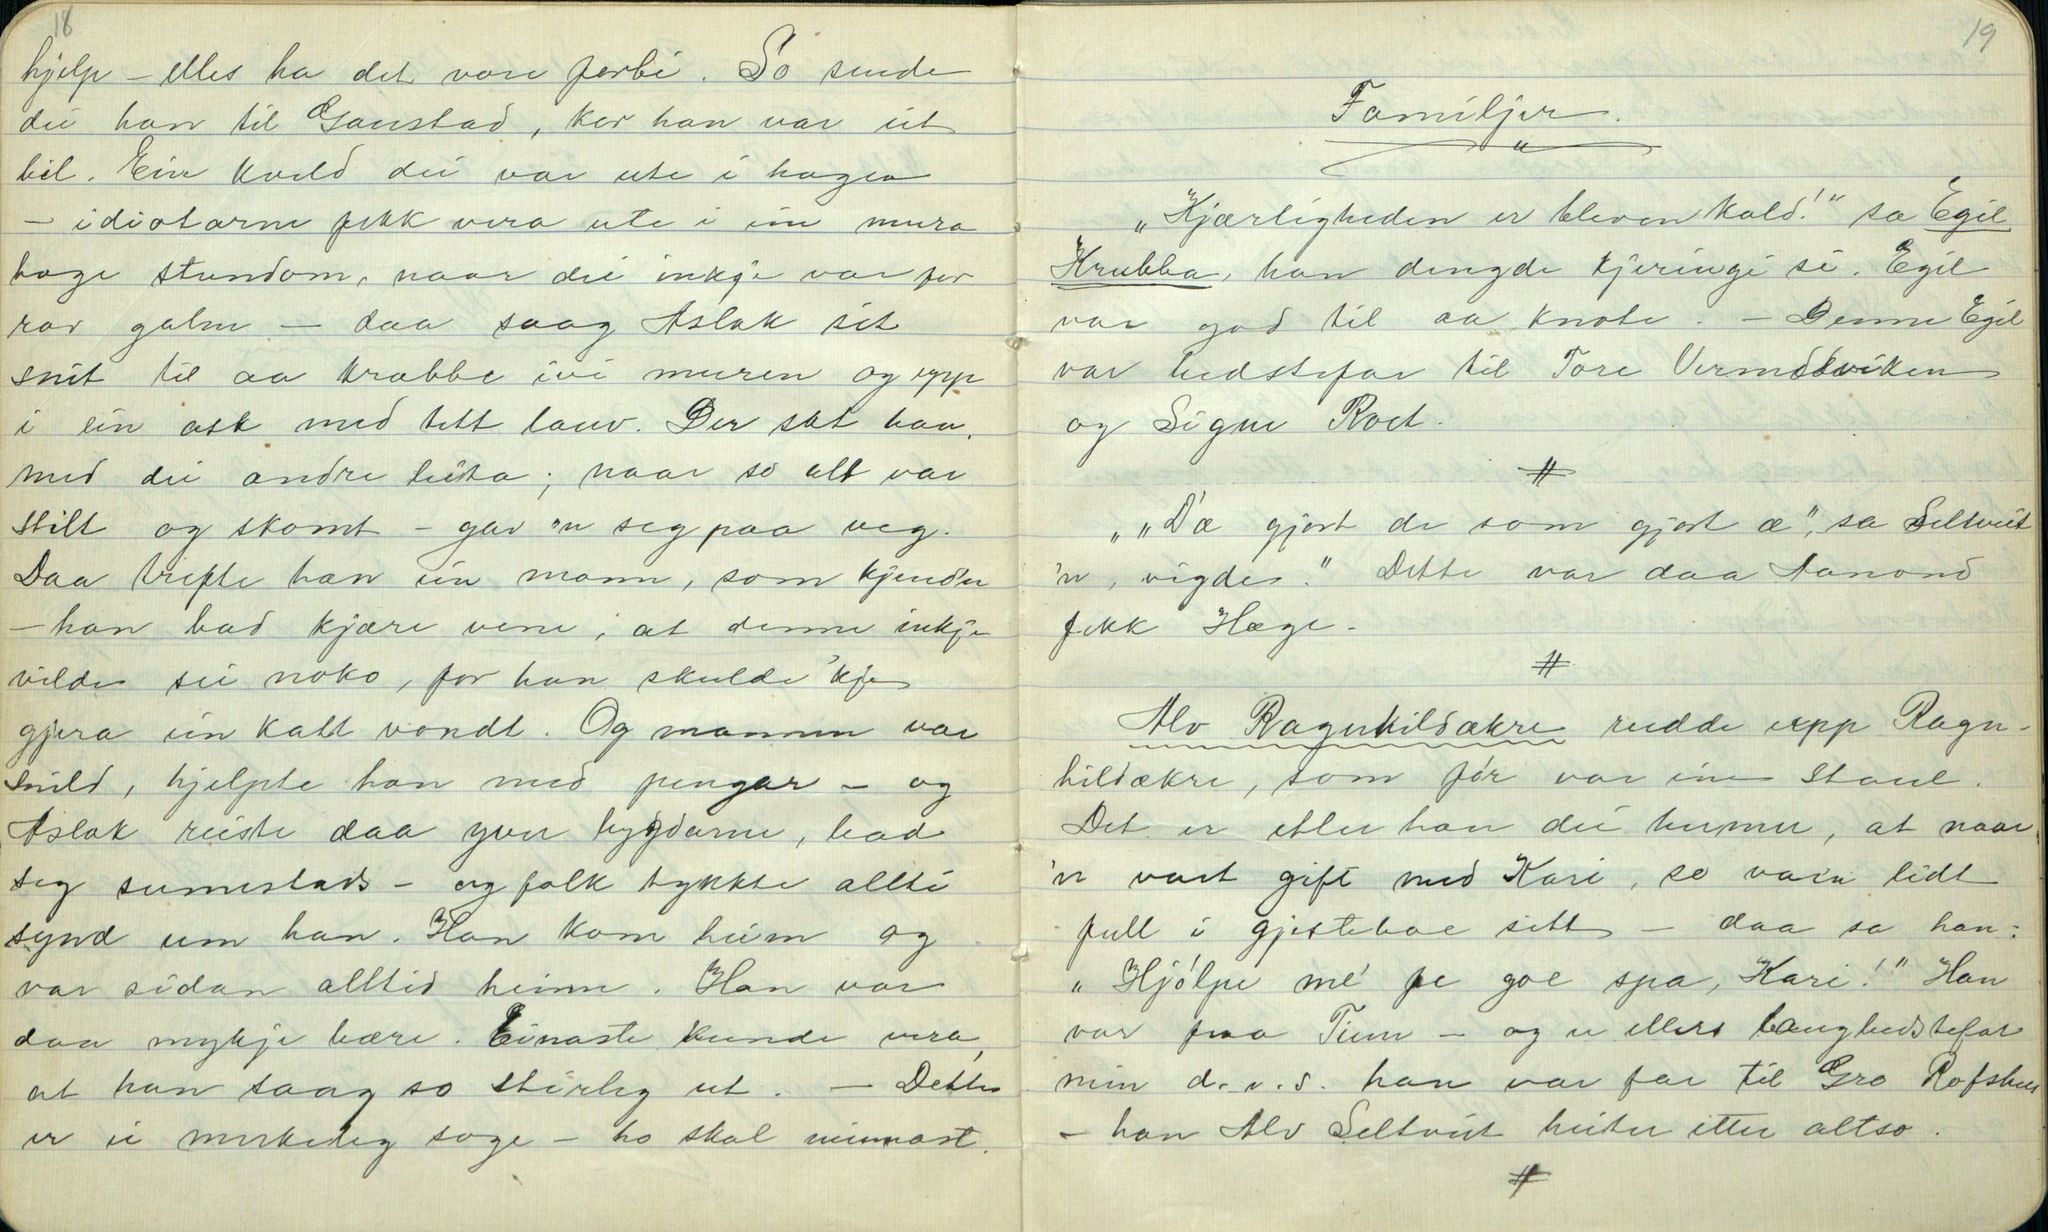 18
hjelp - elles ha det vore forbi. So sende
dei han til Gaustad, kor han var eit
bil. Ein kveld dei var ute i hagen
- idiotarne fekk vera ute i ein mura
hage stundom, naar dei inkje var for
rar galne - daa saag Aslak sit
snit til aa krabbe ivi muren og upp
i ein ask med tett lauv. Der sat han,
med dei andre leita; naar so alt var
stilt og skomt - gav 'n seg paa veg.
Daa trefte han ein mann, som kjende'n
- han bad kjære vene, at denne inkje
vilde sei noko, for han skulde 'kje
gjera ein katt vondt. Og mannen var
snild, hjelpte han med pengar - og
Aslak reiste daa yver bygdarne, bad
seg sumestads - og folk tykkte allti
synd um han. Han kom heim og
var sidan alltid heime. Han var
daa mykje bære. Einaste kunde vera,
at han saag so stirleg ut. - Dette
er ei merkeleg soge - ho skal minnast.
19
Familjer.
"Kjærligheden er bleven kold!" sa Egil
Krubba, han dengde kjeringi si. Egil
var god til aa knote. - Denne Egil
var bedstefar til Tore Vermodviken
og Signe Roet.
#
"„D'æ gjort de som gjort æ", sa Seltveit
'n, vigde." Dette var daa Aanond
fekk Hæge.
#
Alv Ragnhildækre rudde upp Ragn-
hildækre, som før var ein staul.
Det er etter han dei hermer, at naar
'n vart gift med Kari, so var'n lidt
full i gjesteboe sitt - daa sa han:
"Hjølpe me' fe goe spa, Kari!" Han
var fraa Tieen - og er ellers langbedstefar
min d.v.s. han var far til Gro Rofshus
- han Alv Seltveit heiter etter altso.
#